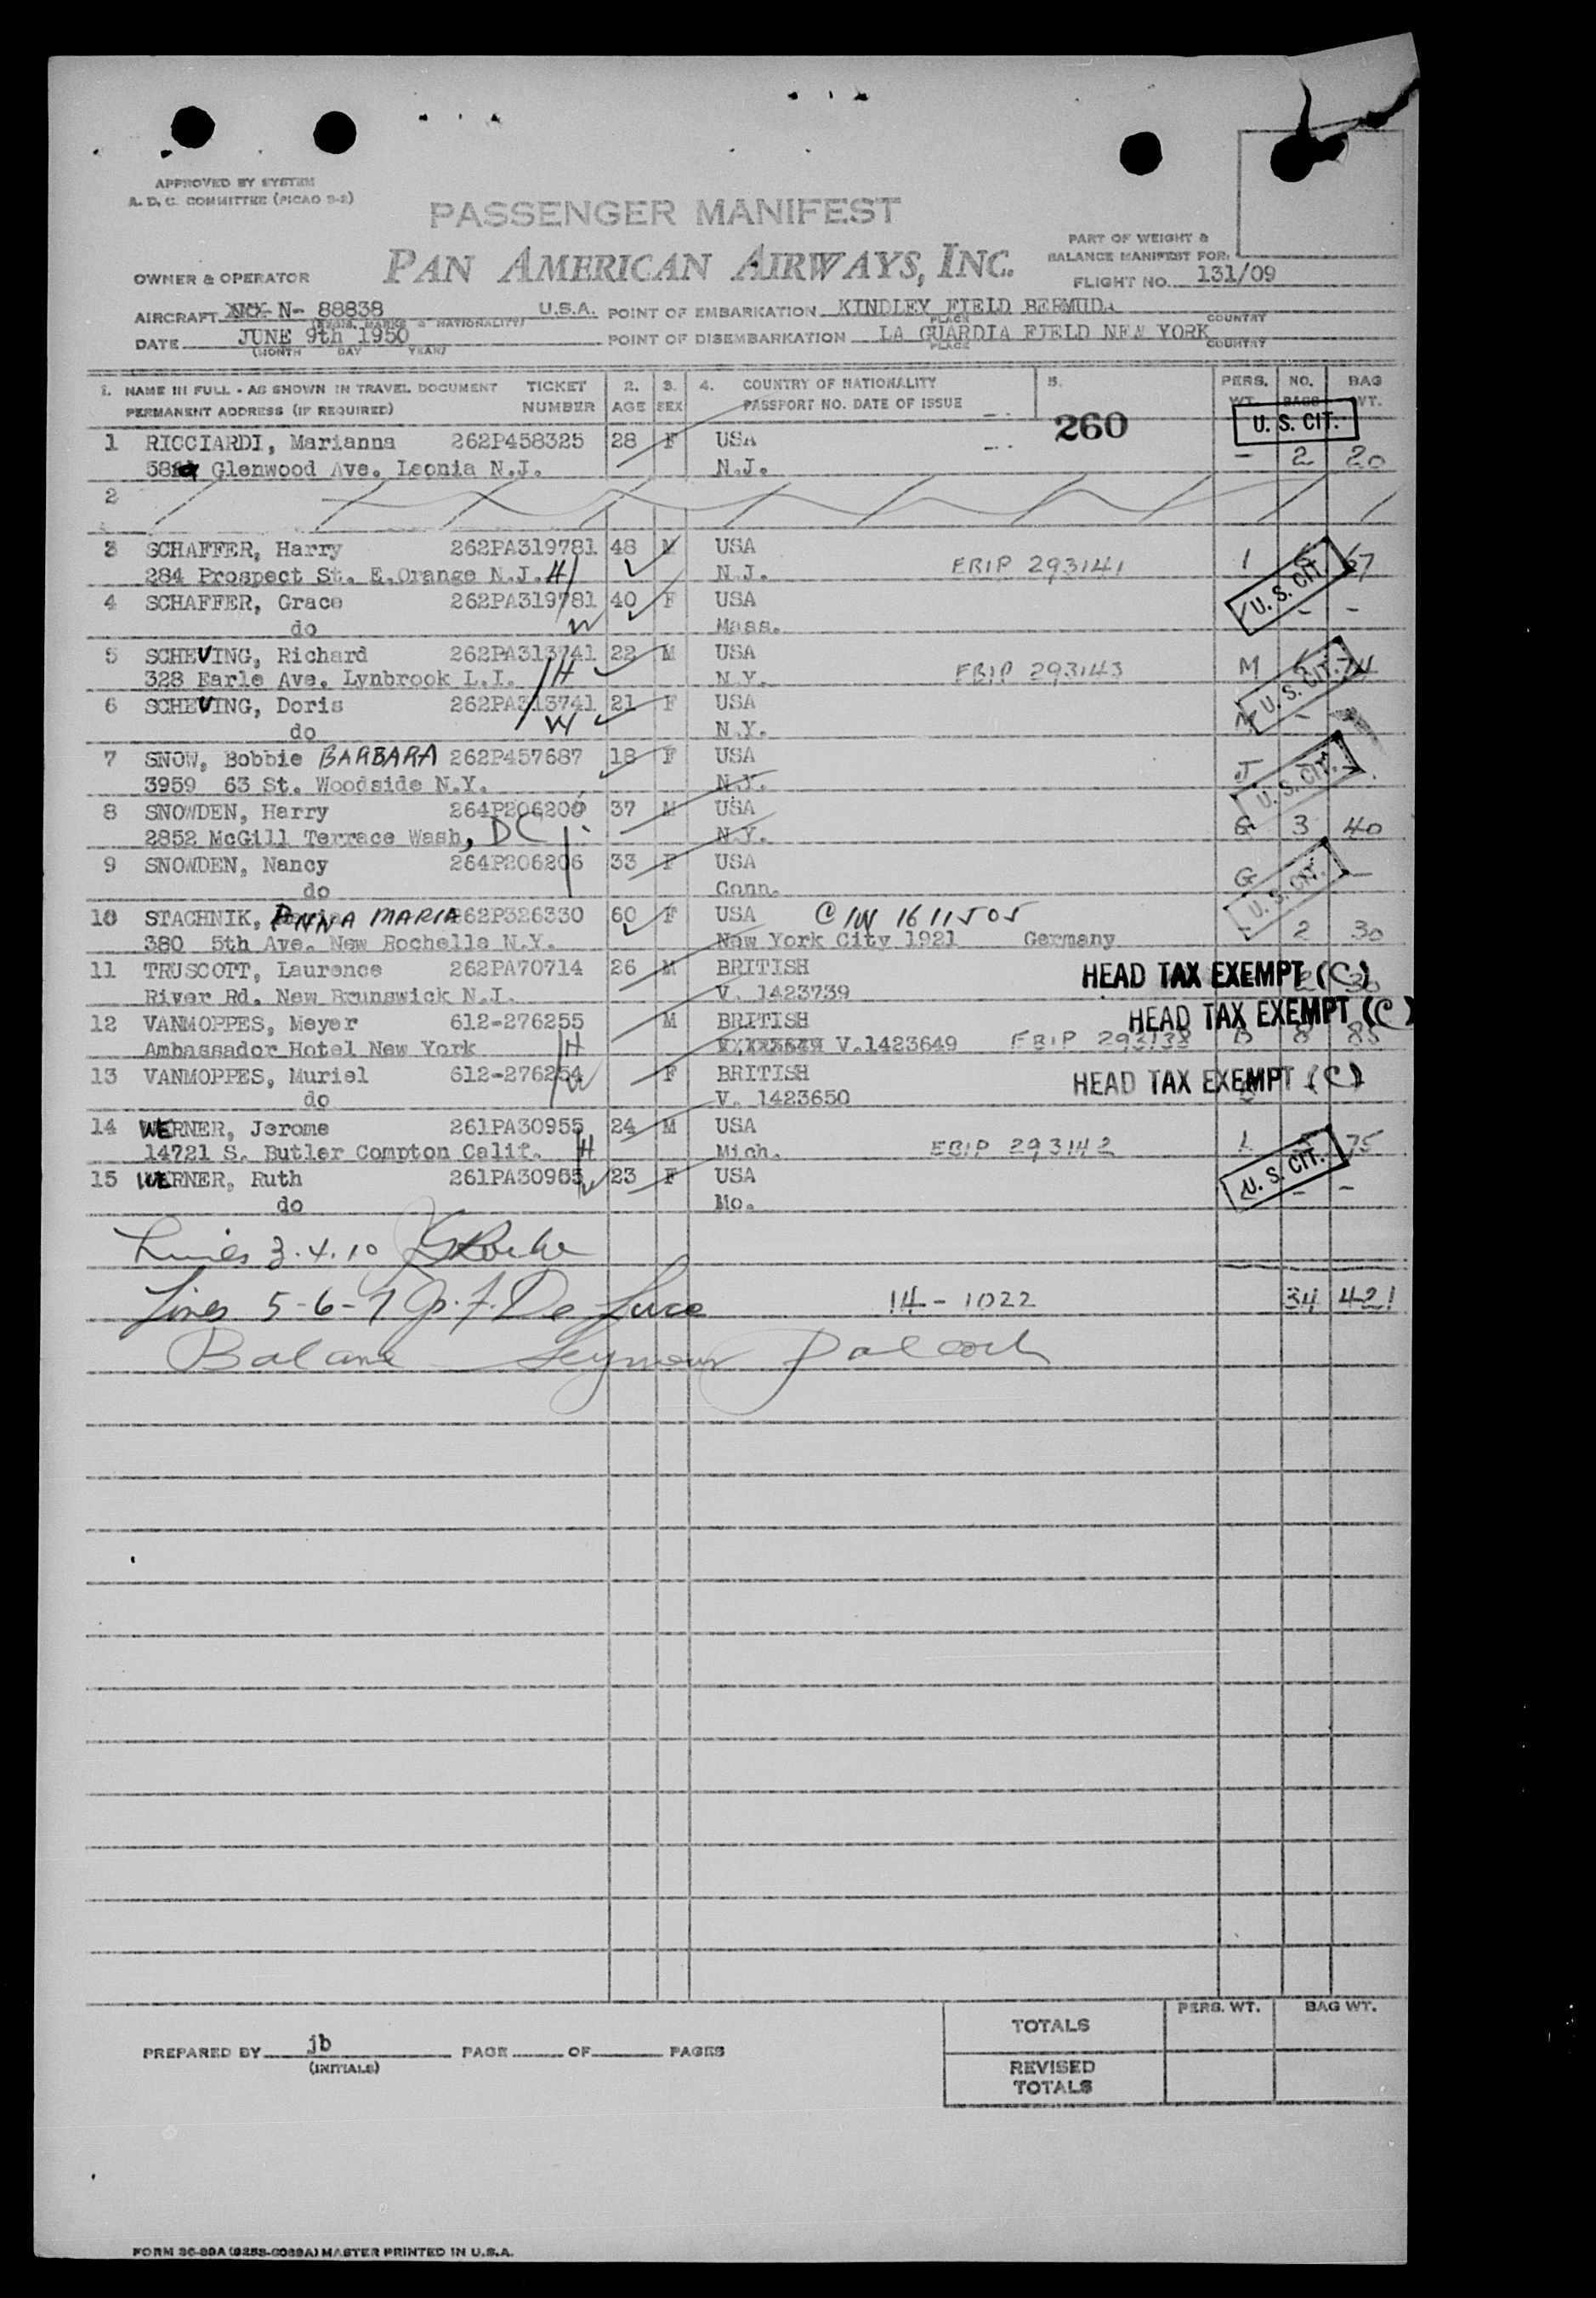 APPROVED BY SYSTEM
A. D. C. COMMITTEE (PICAO 9-2)
PASSENGER MANIFEST
PAN AMERICAN AIRWAYS, INC.
PART OF WEIGHT &
BALANCE MANIFEST FOR:
OWNER & OPERATOR
FLIGHT NO. 131/09
AIRCRAFT N- 88838 U.S.A. POINT OF EMBARKATION KINDLEY FIELD BERMUDA
(REGIS. MARKS & NATIONALITY) PLACE COUNTRY
DATE JUNE 9th 1950 POINT OF DISEMBARKATION LA GUARDIA FIELD NEW YORK
(MONTH DAY YEAR) PLACE COUNTRY
1. NAME IN FULL - AS SHOWN IN TRAVEL DOCUMENT TICKET 2. 3. 4. COUNTRY OF NATIONALITY 5. PERS. NO. BAG
PERMANENT ADDRESS (IF REQUIRED) NUMBER AGE SEX PASSPORT NO. DATE OF ISSUE WT. BAGS WT.
260 U. S. CIT.
1 RICCIARDI, Marianna 262P458325 28 F USA
Glenwood Ave. Leonia N.J. N.J. - 2 20
2
3 SCHAFFER, Harry 262PA319781 48 M USA
284 Prospect St. E.Orange N.J. H N.J. EBIP 293141 1 67
U. S. CIT.
4 SCHAFFER, Grace 262PA319781 40 F USA
do W Mass. - -
5 SCHEVING, Richard 262PA313741 22 M USA
328 Earle Ave. Lynbrook L.I. H N.Y. EBIP 293143 M 74
U. S. CIT.
6 SCHEVING, Doris 262PA313741 21 F USA
do W N.Y. M -
7 SNOW, Bobbie BARBARA 262P457687 18 F USA
3959 63 St. Woodside N.Y. N.Y. J
U. S. CIT.
8 SNOWDEN, Harry 264P206206 37 M USA
2852 McGill Terrace Wash, DC N.Y. G 3 40
9 SNOWDEN, Nancy 264P206206 33 F USA
do Conn. G -
U. S. CIT.
10 STACHNIK, ANNA MARIA 262P326330 60 F USA C/N 1611505
380 5th Ave. New Rochelle N.Y. New York City 1921 Germany - 2 30
11 TRUSCOTT, Laurence 262PA70714 26 M BRITISH HEAD TAX EXEMPT (C)
River Rd. New Brunswick N.J. V. 1423739
12 VANMOPPES, Meyer 612-276255 M BRITISH HEAD TAX EXEMPT (C)
Ambassador Hotel New York H V.1423649 EBIP 293138 B 8 85
13 VANMOPPES, Muriel 612-276254 F BRITISH HEAD TAX EXEMPT (C)
do W V. 1423650
14 WERNER, Jerome 261PA30955 24 M USA
14721 S. Butler Compton Calif. H Mich. EBIP 293142 1 75
U. S. CIT.
15 WERNER, Ruth 261PA30955 W 23 F USA
do Mo. - -
Lines 3.4.10
Lines 5-6-7 De Luce 14-1022 34 421
Balance Seymour
TOTALS PERS. WT. BAG WT.
REVISED
TOTALS
PREPARED BY jb PAGE OF PAGES
(INITIALS)
FORM 36-99A (9258-6069A) MASTER PRINTED IN U.S.A.